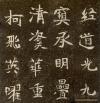 道光九
承明疊
清姿華重
柯飛英曜